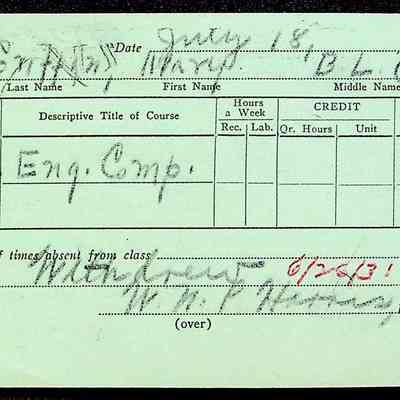 Date July 18,
Mary B. L.
Last Name First Name Middle Name
Descriptive Title of Course Hours a Week CREDIT
Rec. Lab. Qr. Hours Unit
Eng. Comp.
f times absent from class
Withdrew 6/26/31
W. N. P.
(over)